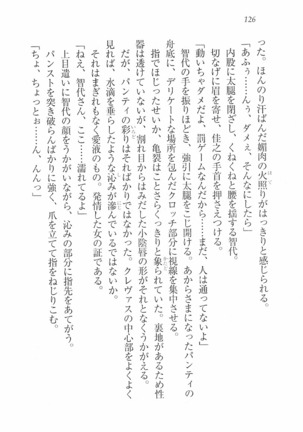 126
った。ほんのり汗ばんだ媚肉の火照りがはっきりと感じられる。
「あふぅ……ん、ダメぇ、そんなにしたら」
内股に太腿を閉じ、くねくねと腰を揺する智代。
切なげに眉を寄せ、佳之の手首を押さえつける。
「動いちゃダメだよ、罰ゲームなんだから……まだ、人は通ってないよ」
智代の手を振りほどき、強引に太腿をこじ開ける。あからさまになったパンティの
舟底に、デリケートな場所を包んだクロッチ部分に視線を集中させる。
指でほじくったせいか、亀裂はことさらくっきりと象られていた。裏地があるため性
器は透けていないが、割れ目からはみだした小陰唇の形がそれとなくうかがえる。
だが、パンティの彩りはそればかりではなかった。クレヴァスの中心部をよくよく
見れば、水滴を垂らしたような沁みが滲んでいるではないか。
それはまぎれもなく愛液のもの。発情した女の証である。
「ねえ、智代さん、ここ……濡れてるよ」
上目遣いに智代の顔をうかがいながら、沁みの部分に指先をあてがう。
パンストを突き破らんばかりに強く、爪を立てて指をねじりこむ。
「ちょ、ちょっとぉ……ん、んんっ」